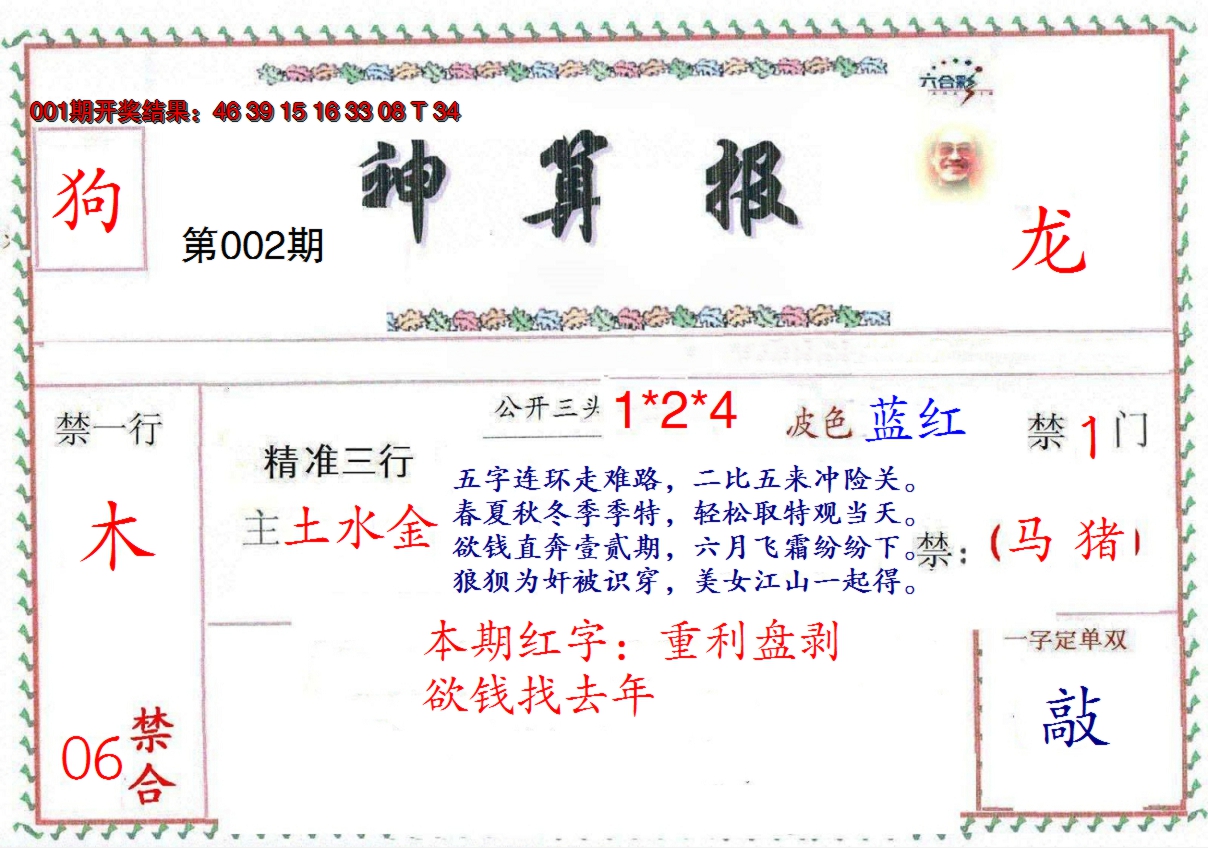 六合彩
001期开奖结果：46 39 15 16 33 08 T 34
狗
第002期
神算报
龙
禁一行
木
06
禁合
精准三行
主土水金
公开三头 1*2*4
波色 蓝红
禁1门
五字连环走难路，二比五来冲险关。
春夏秋冬季季特，轻松取特观当天。
欲钱直奔壹贰期，六月飞霜纷纷下。
狼狈为奸被识穿，美女江山一起得。
禁：（马 猪）
本期红字：重利盘剥
欲钱找去年
一字定单双
敲